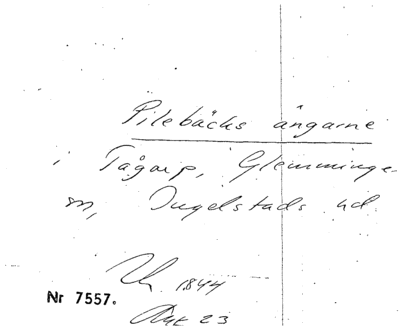 Pilebäcks ängarne
i Tågarp, Glemminge-
sn, Ingelstads hd.
1844
Nr 7557.
Akt 23